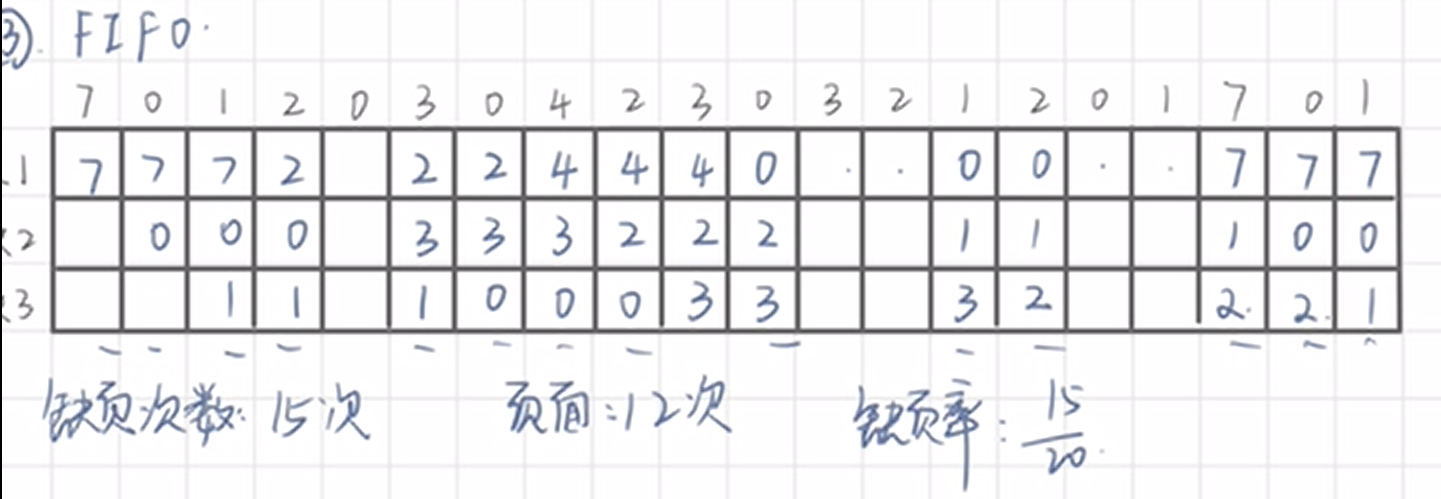 ③. FIFO.
7 0 1 2 0 3 0 4 2 3 0 3 2 1 2 0 1 7 0 1
1 7 7 7 2 2 2 4 4 4 0 · · 0 0 · · 7 7 7
2 0 0 0 3 3 3 2 2 2 1 1 1 0 0
3 1 1 1 0 0 0 3 3 3 2 2. 2. 1
缺页次数: 15次 页面:12次 缺页率: 15/20.